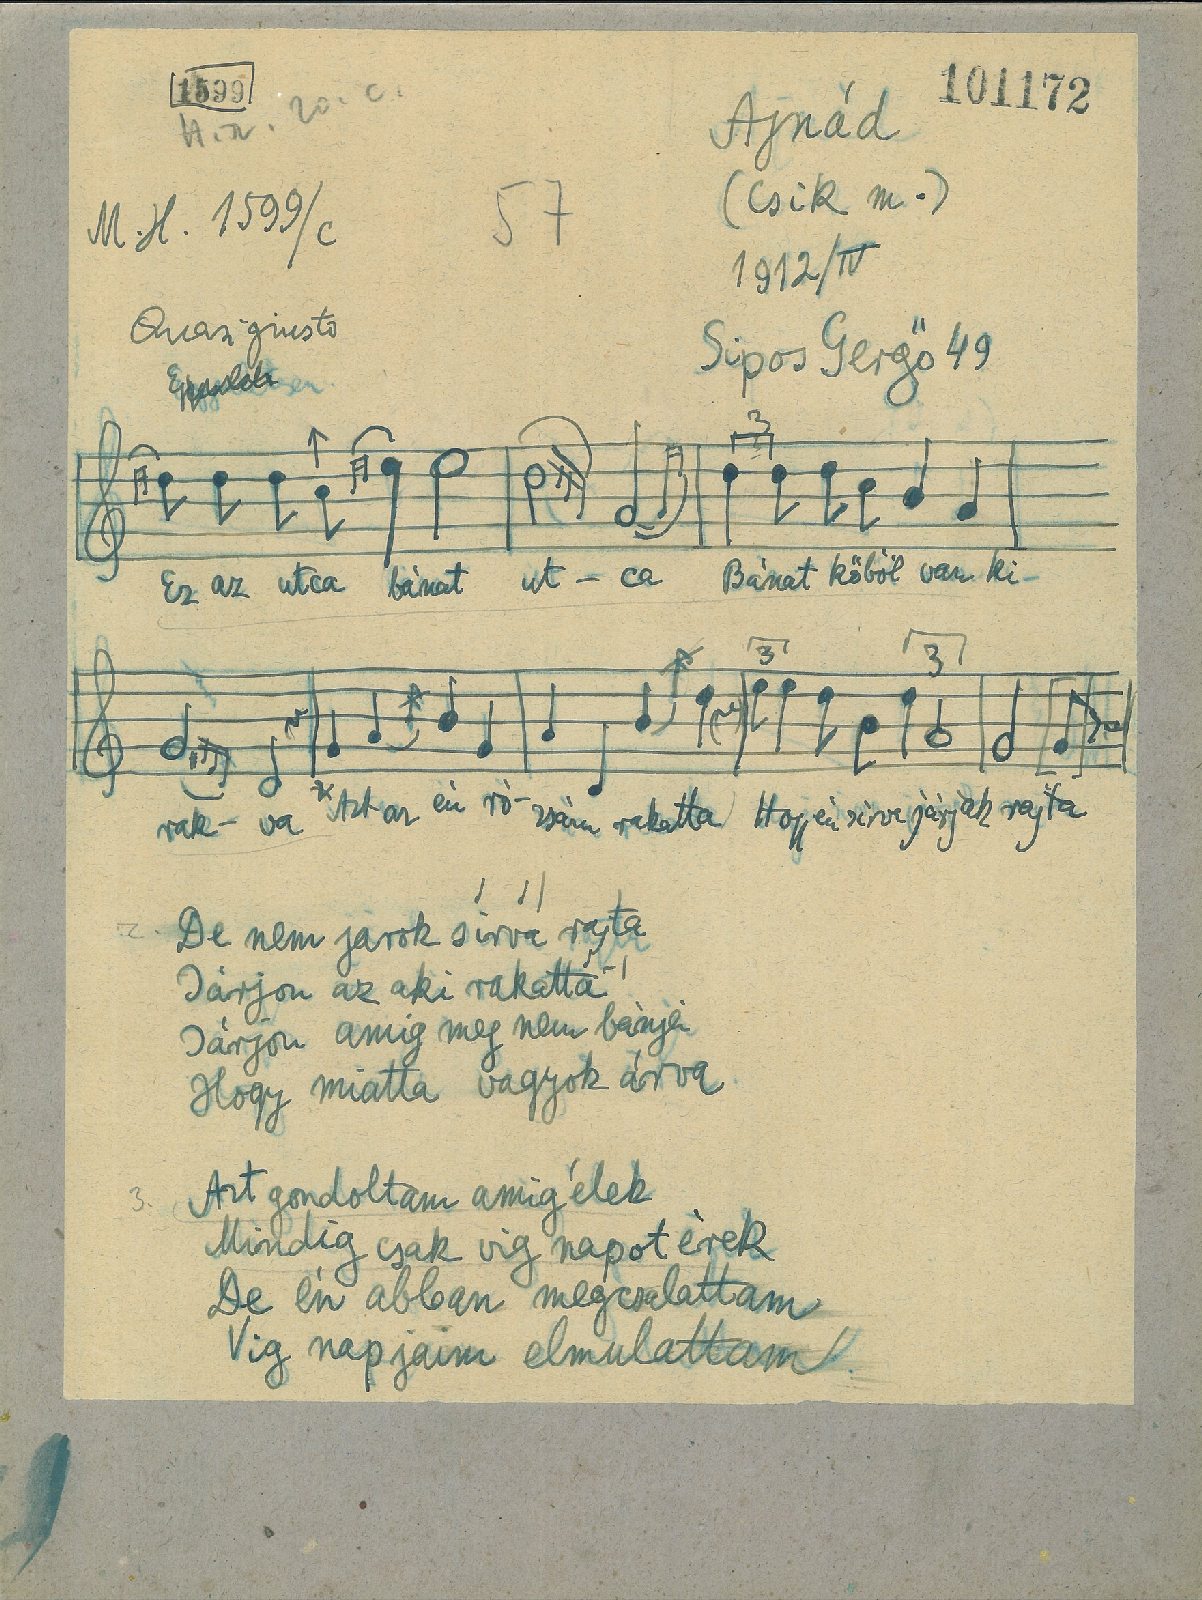 1599
101172
H.n. 20. c.
Ajnád
(Csik m.)
M.H. 1599/c
57
1912/IV
Quasi giusto
Sipos Gergő 49
3
Ez az utca bánat ut - ca Bánat kőből van ki-
3 3
rak - va Azt az én ró- zsám rakatta Hogy én sirva járjak rajta
2. De nem járok sirva rajta
Járjon az aki rakatta
Járjon amig meg nem bánja
Hogy miatta vagyok árva
3. Azt gondoltam amig élek
Mindig csak vig napot érek
De én abban megcsalattam
Vig napjaim elmulattam